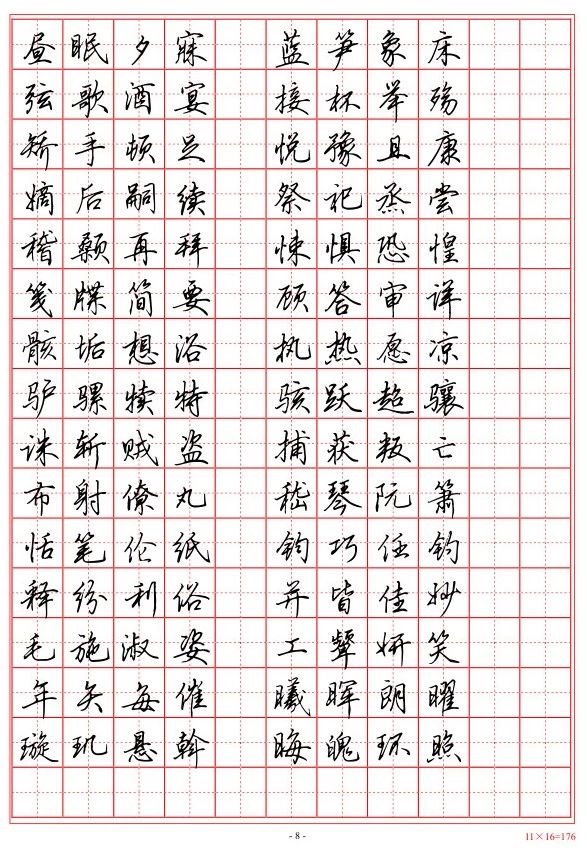 昼眠夕寐 蓝笋象床
弦歌酒宴 接杯举殇
矫手顿足 悦豫且康
嫡后嗣续 祭祀烝尝
稽颡再拜 悚惧恐惶
笺牒简要 顾答审详
骸垢想浴 执热愿凉
驴骡犊特 骇跃超骧
诛斩贼盗 捕获叛亡
布射僚丸 嵇琴阮箫
恬笔伦纸 钧巧任钓
释纷利俗 并皆佳妙
毛施淑姿 工颦妍笑
年矢每催 曦晖朗曜
璇玑悬斡 晦魄环照
- 8 -
11×16=176